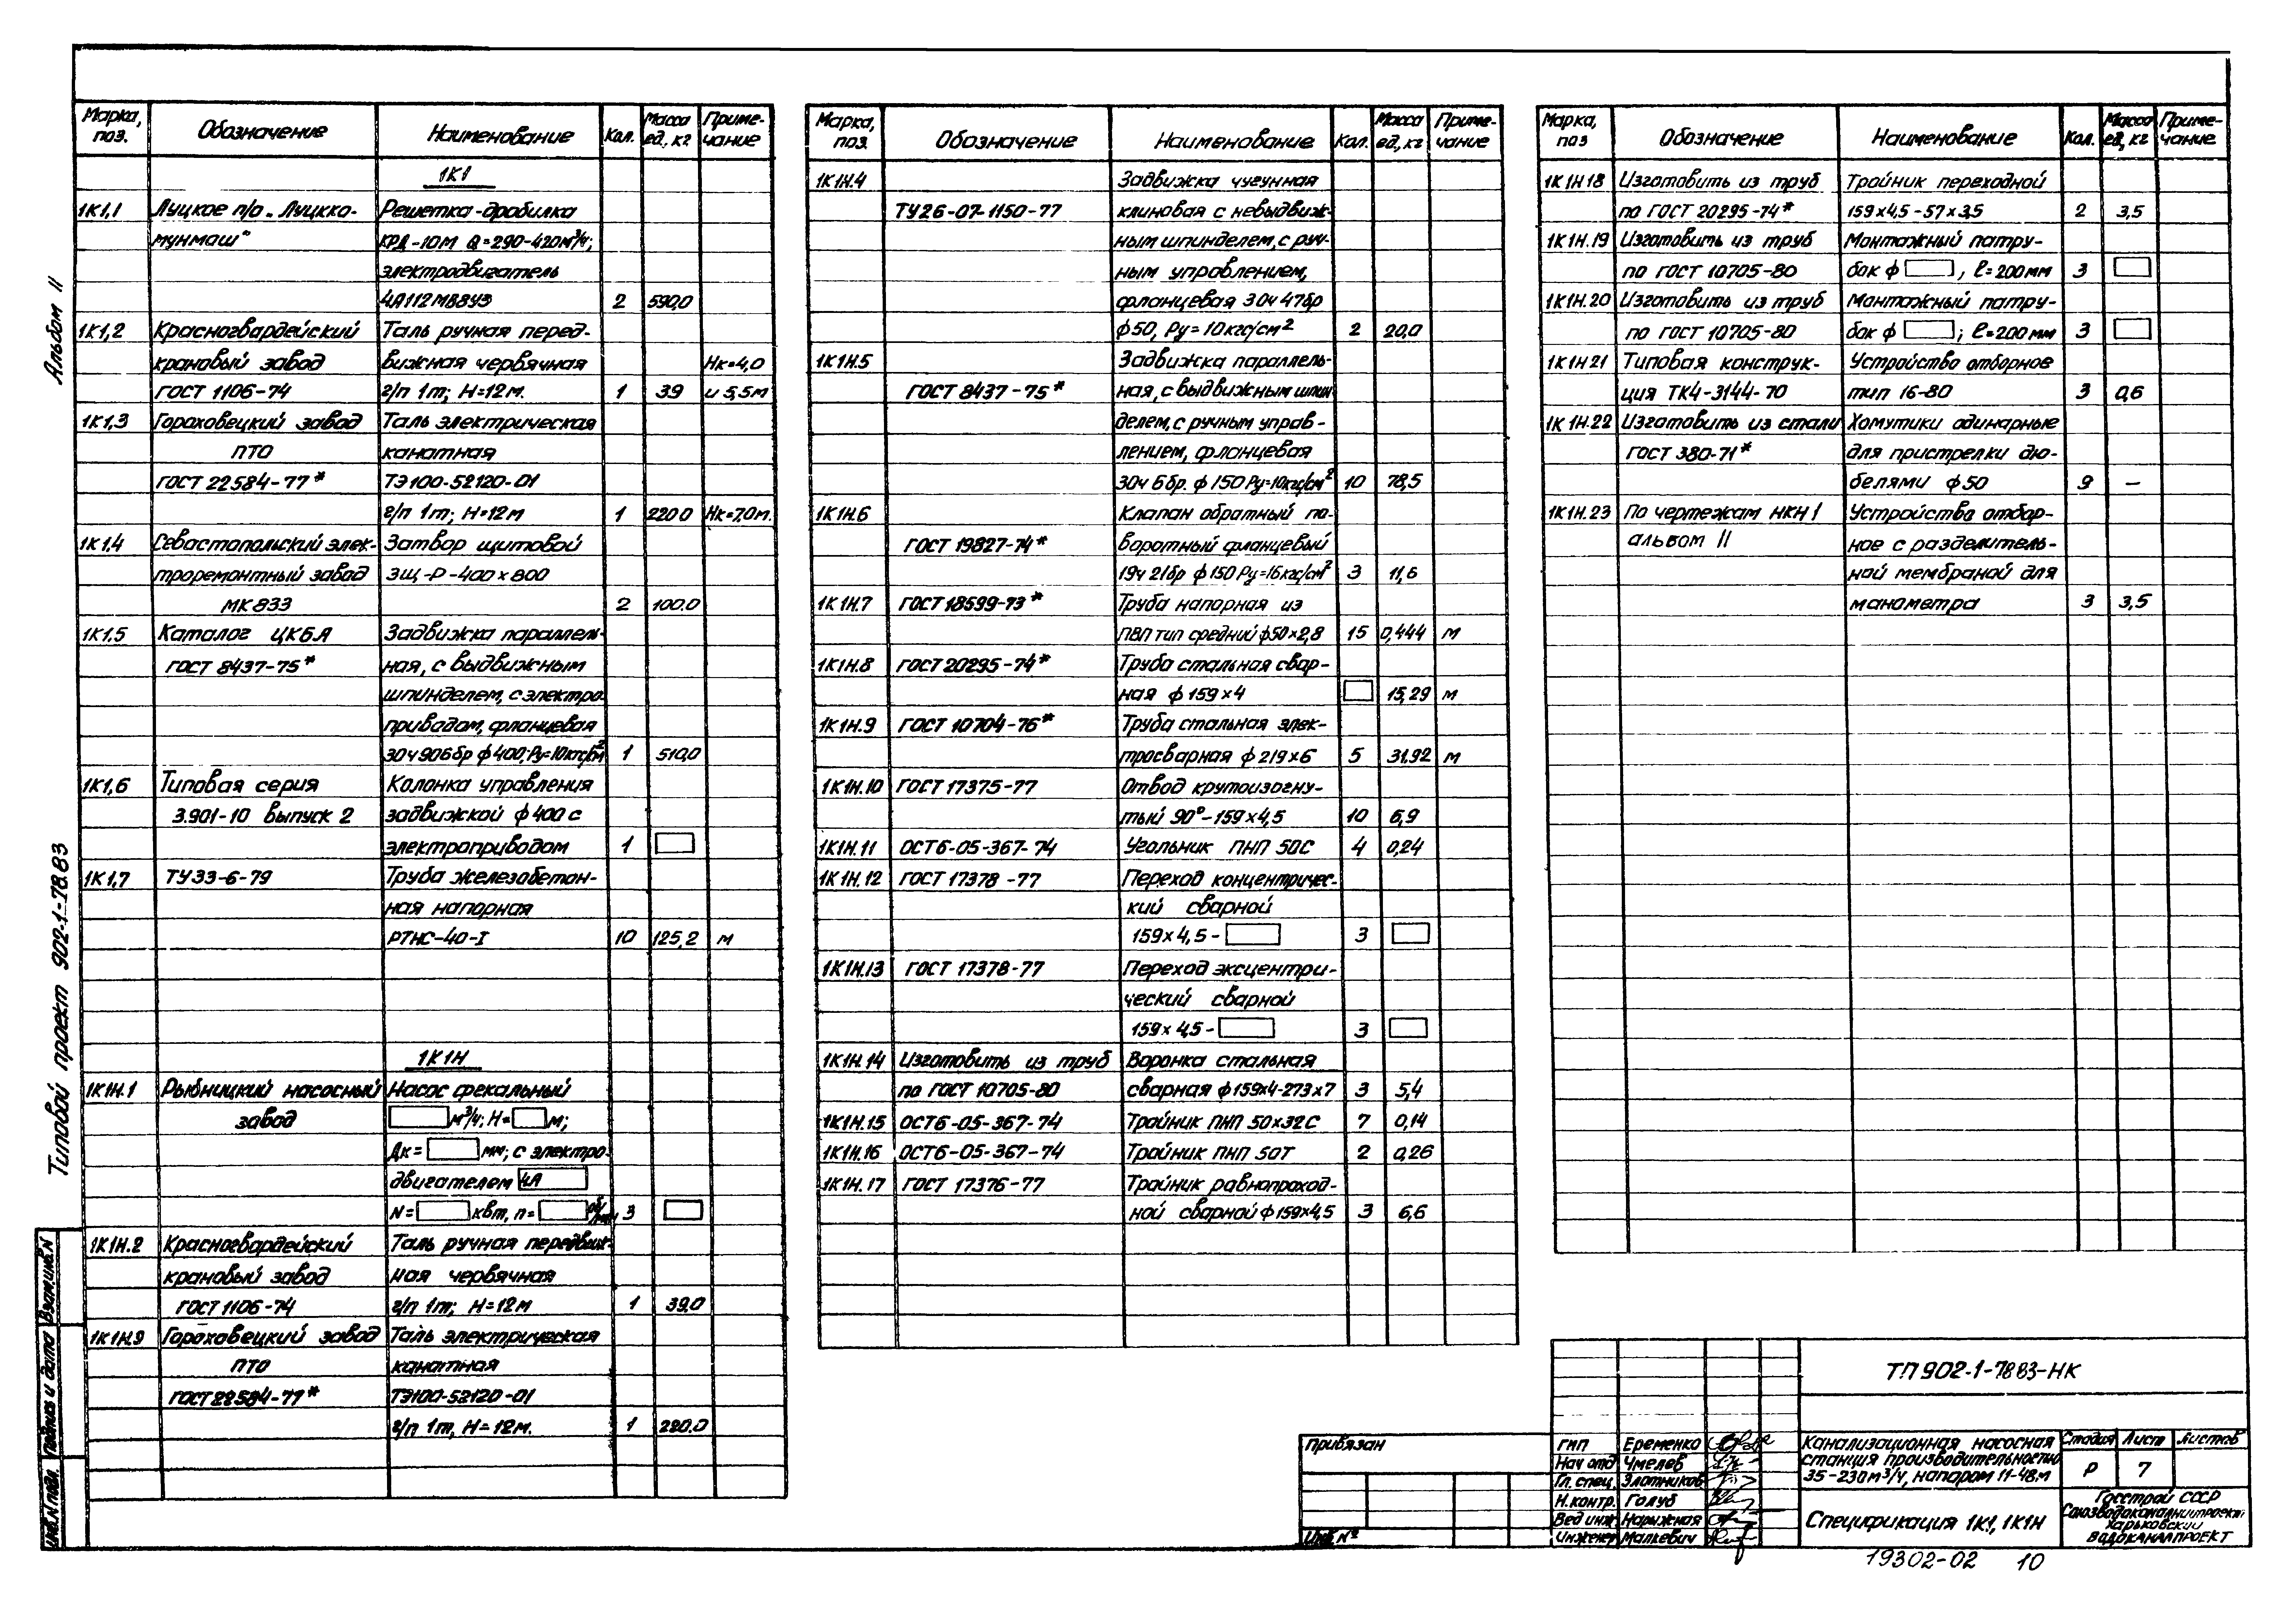 Альбом II
Типовой проект 902-1-78.83
Марка, поз. Обозначение Наименование Кол. Масса ед., кг Примечание
1К1
1К1,1 Луцкое п/о „Луцкко- Решетка-дробилка
мунмаш" КРД-10М Q=290-420м³/ч;
электродвигатель
4А112МВ8У3 2 590,0
1К1,2 Красногвардейский Таль ручная перед-
крановый завод вижная червячная Нк=4,0
ГОСТ 1106-74 г/п 1т; Н=12м. 1 39 и 5,5м
1К1,3 Гороховецкий завод Таль электрическая
ПТО канатная
ГОСТ 22584-77* ТЭ100-52120-01
г/п 1т; Н=12м 1 220.0 Нк=7,0м.
1К1.4 Севастопольский элек- Затвор щитовой
троремонтный завод ЗЩ-Р-400×800
МК 833 2 100.0
1К1.5 Каталог ЦКБА Задвижка параллель-
ГОСТ 8437-75* ная, с выдвижным
шпинделем, с электро-
приводом, фланцевая
30ч906бр ф400; Ру=10кгс/см² 1 510,0
1К1,6 Типовая серия Колонка управления
3.901-10 выпуск 2 задвижкой ф400 с
электроприводом 1
1К1,7 ТУ33-6-79 Труба железобетон-
ная напорная
РТНС-40-I 10 125,2 м
1К1Н
1К1Н.1 Рыбницкий насосный Насос фекальный
завод м³/ч; Н= м;
Дк= мм; с электро-
двигателем 4А
N= квт, n= об/мин 3
1К1Н.2 Красногвардейский Таль ручная передвиж-
крановый завод ная червячная
ГОСТ 1106-74 г/п 1т; Н=12м 1 39.0
1К1Н.3 Гороховецкий завод Таль электрическая
ПТО канатная
ГОСТ 22584-77* ТЭ100-52120-01
г/п 1т, Н=12м. 1 220.0
Марка, поз. Обозначение Наименование Кол. Масса ед., кг Примечание
1К1Н.4 Задвижка чугунная
ТУ26-07-1150-77 клиновая с невыдвиж-
ным шпинделем, с руч-
ным управлением,
фланцевая 30ч 47бр
ф50, Ру=10кгс/см² 2 20,0
1К1Н.5 Задвижка параллель-
ГОСТ 8437-75* ная, с выдвижным шпин
делем, с ручным управ-
лением, фланцевая
30ч 6бр. ф 150 Ру=10кгс/см² 10 78,5
1К1Н.6 Клапан обратный по-
ГОСТ 19827-74* воротный фланцевый
19ч 21бр ф150 Ру=16кгс/см² 3 11,6
1К1Н.7 ГОСТ 18599-73* Труба напорная из
ПВП тип средний ф50×2,8 15 0,444 м
1К1Н.8 ГОСТ 20295-74* Труба стальная свар-
ная ф159×4 15,29 м
1К1Н.9 ГОСТ 10704-76* Труба стальная элек-
тросварная ф219×6 5 31.92 м
1К1Н.10 ГОСТ 17375-77 Отвод крутоизогну-
тый 90°-159×4,5 10 6,9
1К1Н.11 ОСТ6-05-367-74 Угольник ПНП 50С 4 0,24
1К1Н.12 ГОСТ 17378-77 Переход концентричес-
кий сварной
159×4,5- 3
1К1Н.13 ГОСТ 17378-77 Переход эксцентри-
ческий сварной
159×4,5- 3
1К1Н.14 Изготовить из труб Воронка стальная
по ГОСТ 10705-80 сварная ф159×4-273×7 3 5,4
1К1Н.15 ОСТ6-05-367-74 Тройник ПНП 50×32С 7 0,14
1К1Н.16 ОСТ6-05-367-74 Тройник ПНП 50Т 2 0,26
1К1Н.17 ГОСТ 17376-77 Тройник равнопроход-
ной сварной ф159×4,5 3 6,6
Марка, поз Обозначение Наименование Кол. Масса ед, кг Примечание
1К1Н18 Изготовить из труб Тройник переходной
по ГОСТ 20295-74* 159×4,5-57×3,5 2 3,5
1К1Н.19 Изготовить из труб Монтажный патру-
по ГОСТ 10705-80 бок ф , ℓ=200мм 3
1К1Н.20 Изготовить из труб Монтажный патру-
по ГОСТ 10705-80 бок ф ; ℓ=200мм 3
1К1Н21 Типовая конструк- Устройство отборное
ция ТК4-3144-70 тип 16-80 3 0,6
1К1Н.22 Изготовить из стали Хомутики одинарные
ГОСТ 380-71* для пристрелки дю-
белями ф50 9 —
1К1Н.23 По чертежам НКН1 Устройства отбор-
альбом II ное с разделитель-
ной мембраной для
манометра 3 3,5
Взам.инв.N
Подпись и дата
Инв.N подл.
Привязан
Инв.N°
ГИП Еременко
Нач отд Чмелев
Гл. спец. Злотников
Н.контр. Голуб
Вед инж Нарыжная
Инженер Малкевич
ТП 902-1-78 83-НК
Канализационная насосная
станция производительностью
35-230м³/ч, напором 11-48м
Стадия Лист Листов
Р 7
Спецификация 1К1, 1К1Н
Госстрой СССР
Союзводоканалниипроект
Харьковский
ВОДОКАНАЛПРОЕКТ
19302-02 10